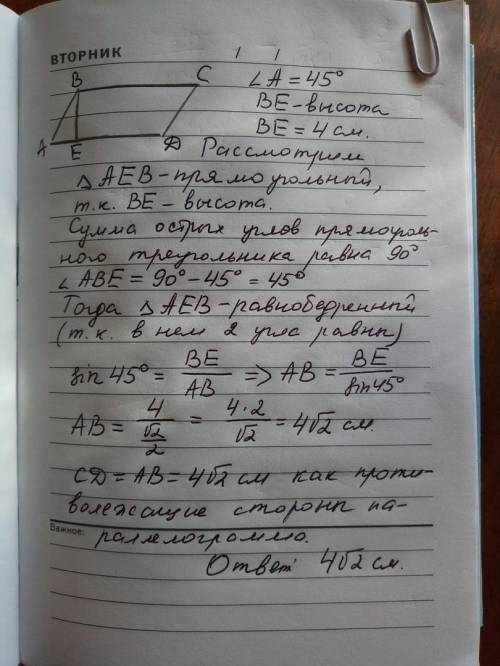 ВТОРНИК
B C ∠A = 45°
BE - высота
BE = 4 см.
A E D Рассмотрим
△AEB - прямоугольный,
т.к. BE - высота.
Сумма острых углов прямоуголь-
ного треугольника равна 90°
∠ABE = 90° - 45° = 45°
Тогда △AEB - равнобедренный
(т.к. в нем 2 угла равны)
sin 45° = BE/AB => AB = BE/sin45°
AB = 4/(√2/2) = 4·2/√2 = 4√2 см.
CD = AB = 4√2 см как проти-
волежащие стороны па-
Важное: раллелограмма.
Ответ: 4√2 см.